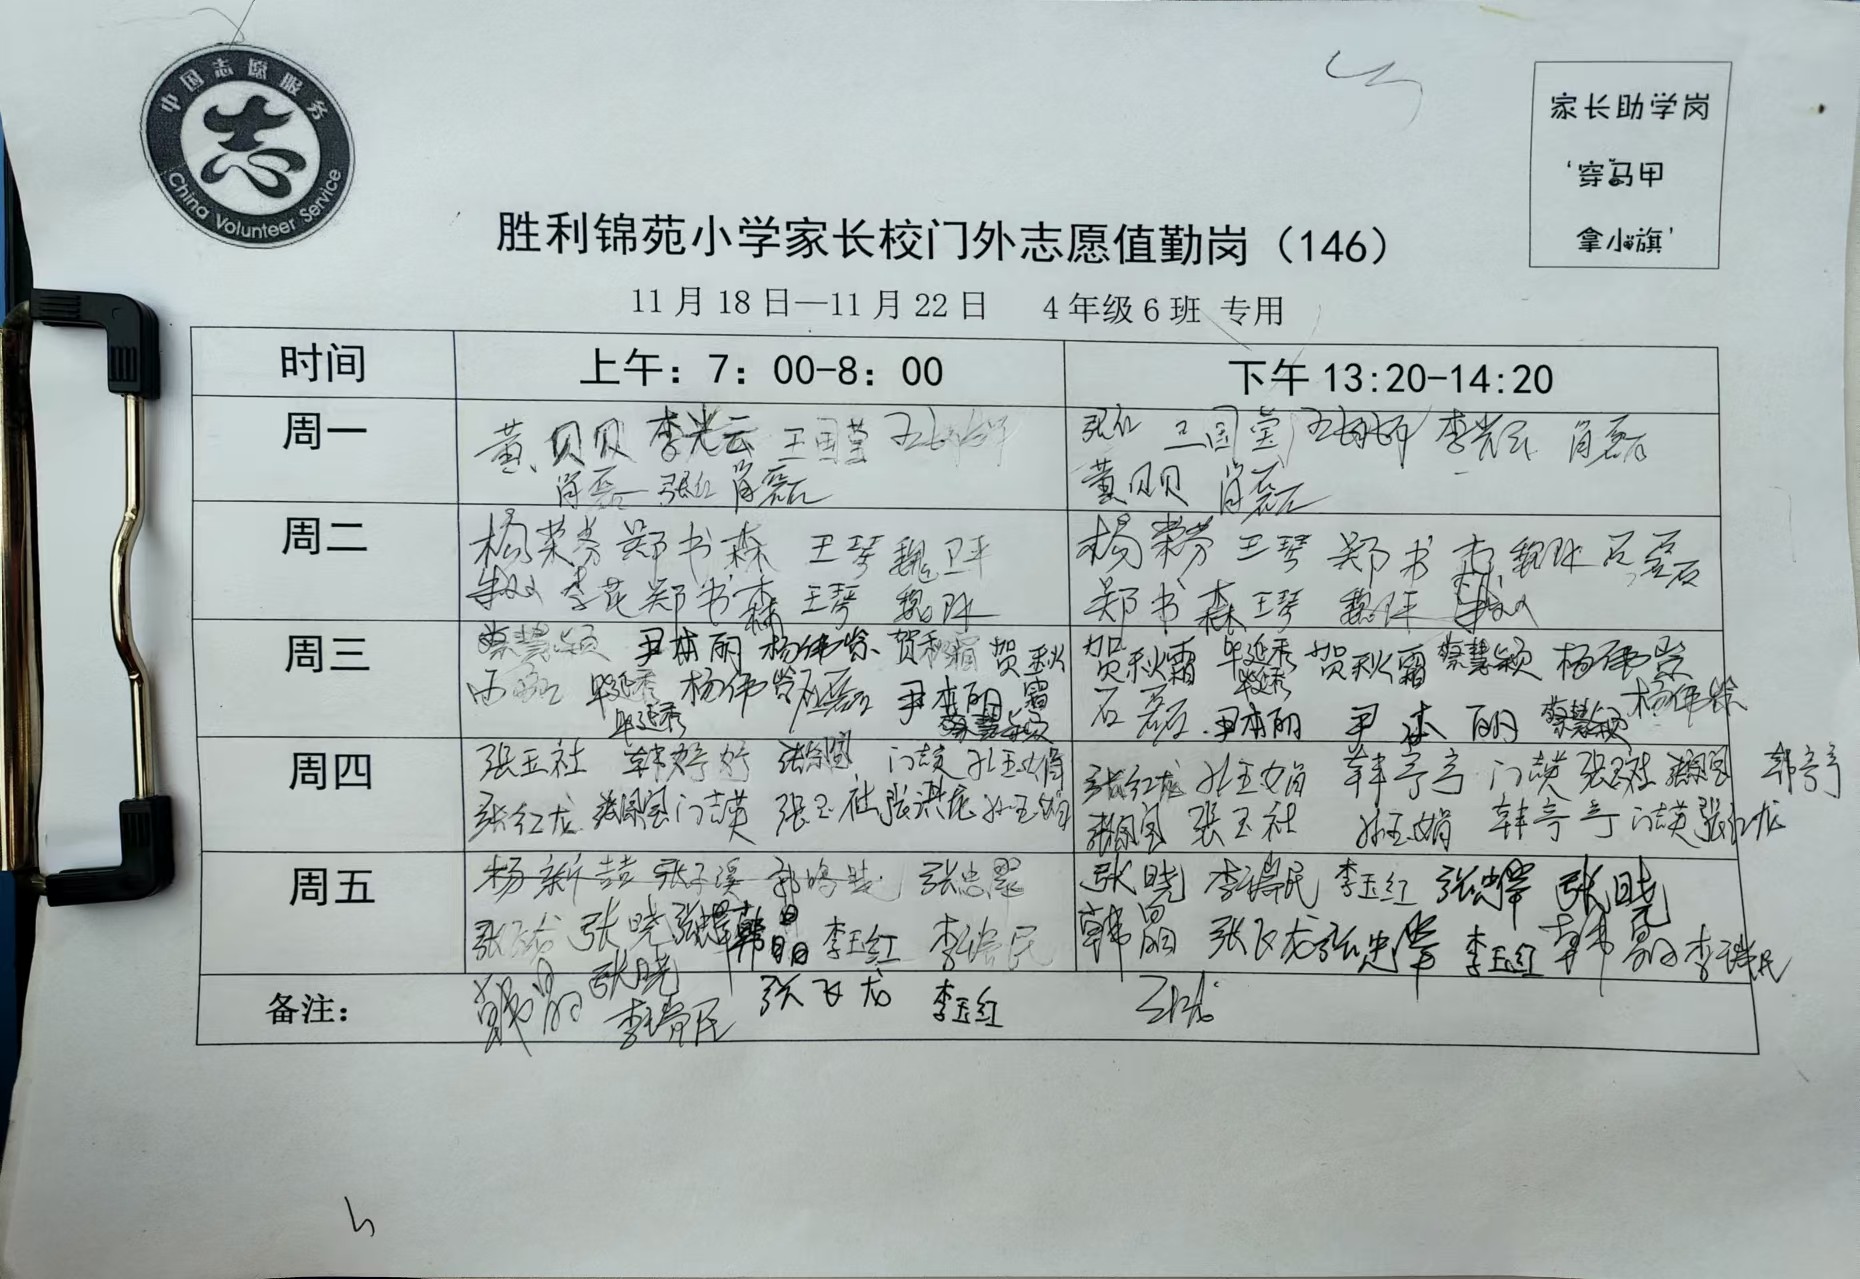 中国志愿服务
志
China Volunteer Service
家长助学岗
‘穿马甲
拿小旗’
胜利锦苑小学家长校门外志愿值勤岗（146）
11月18日—11月22日 4年级6班 专用
时间 上午：7：00-8：00 下午13:20-14:20
周一
黄贝贝 李光云 王国莹
肖磊 张红 肖磊
张红 王国莹 李光云 肖磊
黄贝贝 肖磊
周二
杨荣芬 郑书森 王琴 魏卫平
李花 郑书森 王琴
杨荣芬 王琴 郑书
郑书森 王琴
周三
蔡慧颖 尹本丽 杨伟岭 贺秋霜 贺秋霜
毕延秀 杨伟岭 石磊 尹本丽
毕延秀 蔡慧颖
贺秋霜 毕延秀 贺秋霜 蔡慧颖 杨伟岭
毕延秀
石磊 尹本丽 尹本丽 蔡慧颖 杨伟岭
周四
张玉社 韩婷婷 门志英 孙玉娟
张红龙 门志英 张玉社 张洪龙 孙玉娟
张红龙 孙玉娟 韩亭亭 门志英 张玉社 韩亭亭
张玉社 孙玉娟 韩亭亭 门志英 张红龙
周五
杨新喆 张子溪 张忠翠
张飞龙 张晓 韩晶 李玉红 李瑞民
张晓 李瑞民 李玉红 张忠翠 张晓
韩晶 张飞龙 张忠翠 李玉红 韩晶 李瑞民
备注：
韩晶 张晓 李瑞民 张飞龙 李玉红